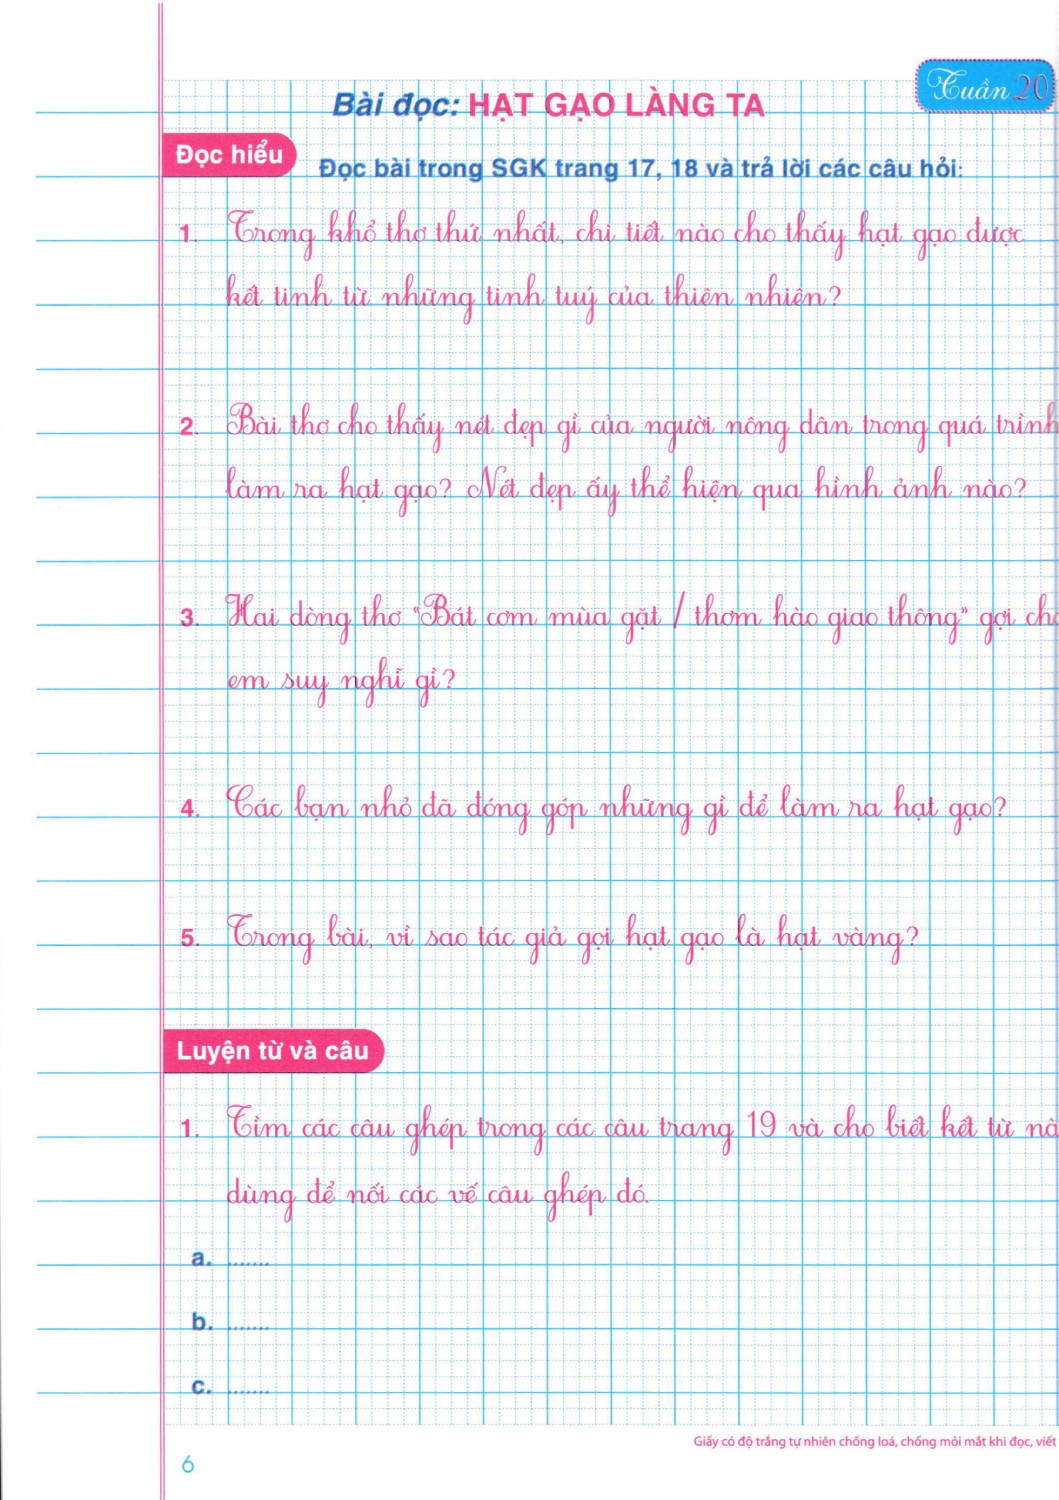 Tuần 20
Bài đọc: HẠT GẠO LÀNG TA
Đọc hiểu
Đọc bài trong SGK trang 17, 18 và trả lời các câu hỏi:
1. Trong khổ thơ thứ nhất, chi tiết nào cho thấy hạt gạo được
kết tinh từ những tinh tuý của thiên nhiên?
2. Bài thơ cho thấy nét đẹp gì của người nông dân trong quá trình
làm ra hạt gạo? Nét đẹp ấy thể hiện qua hình ảnh nào?
3. Hai dòng thơ "Bát cơm mùa gặt / thơm hào giao thông" gợi cho
em suy nghĩ gì?
4. Các bạn nhỏ đã đóng góp những gì để làm ra hạt gạo?
5. Trong bài, vì sao tác giả gọi hạt gạo là hạt vàng?
Luyện từ và câu
1. Tìm các câu ghép trong các câu trang 19 và cho biết kết từ nà
dùng để nối các vế câu ghép đó.
a. .......
b. .......
c. .......
Giấy có độ trắng tự nhiên chống loá, chống mỏi mắt khi đọc, viết
6